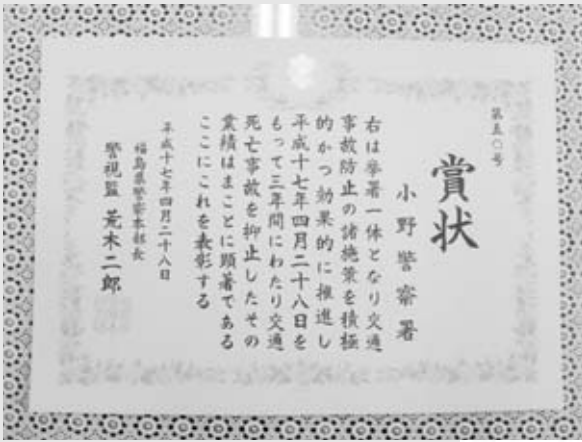 第五〇号
賞状
小野警察署
右は挙署一体となり交通
事故防止の諸施策を積極
的かつ効果的に推進し
平成十七年四月二十八日を
もって三年間にわたり交通
死亡事故を抑止したその
業績はまことに顕著である
ここにこれを表彰する
平成十七年四月二十八日
福島県警察本部長
警視監 荒木二郎